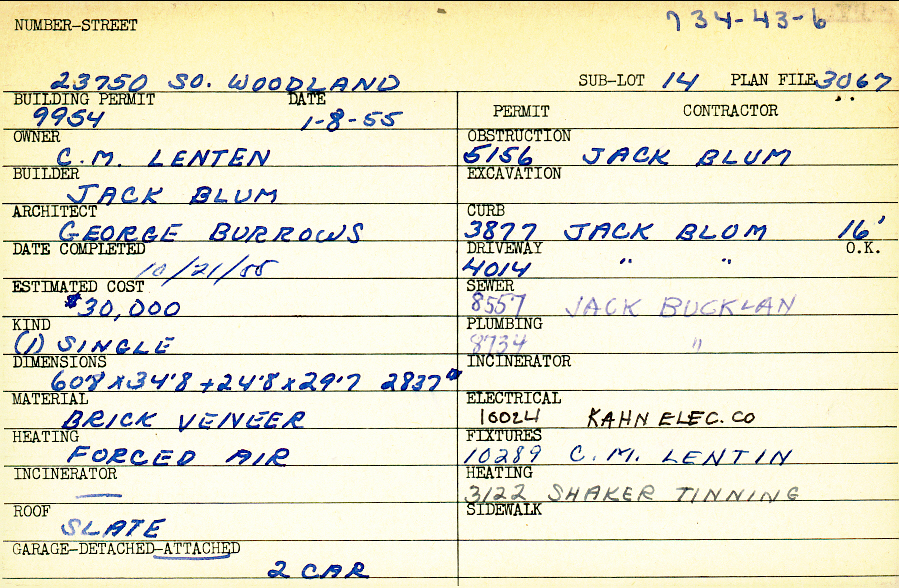 734-43-6
NUMBER-STREET
23750 SO. WOODLAND SUB-LOT 14 PLAN FILE 3067
BUILDING PERMIT DATE
9954 1-8-55
OWNER
C.M. LENTEN
BUILDER
JACK BLUM
ARCHITECT
GEORGE BURROWS
DATE COMPLETED
10/21/55
ESTIMATED COST
$30,000
KIND
(1) SINGLE
DIMENSIONS
60'8 x 34'8 + 24'8 x 29'7 2837
MATERIAL
BRICK VENEER
HEATING
FORCED AIR
INCINERATOR
—
ROOF
SLATE
GARAGE-DETACHED-ATTACHED
2 CAR
PERMIT CONTRACTOR
OBSTRUCTION
5156 JACK BLUM
EXCAVATION
CURB
3877 JACK BLUM 16'
DRIVEWAY O.K.
4014 " "
SEWER
8557 JACK BUCKLAN
PLUMBING
8734 "
INCINERATOR
ELECTRICAL
16024 KAHN ELEC. CO
FIXTURES
10289 C.M. LENTIN
HEATING
3122 SHAKER TINNING
SIDEWALK